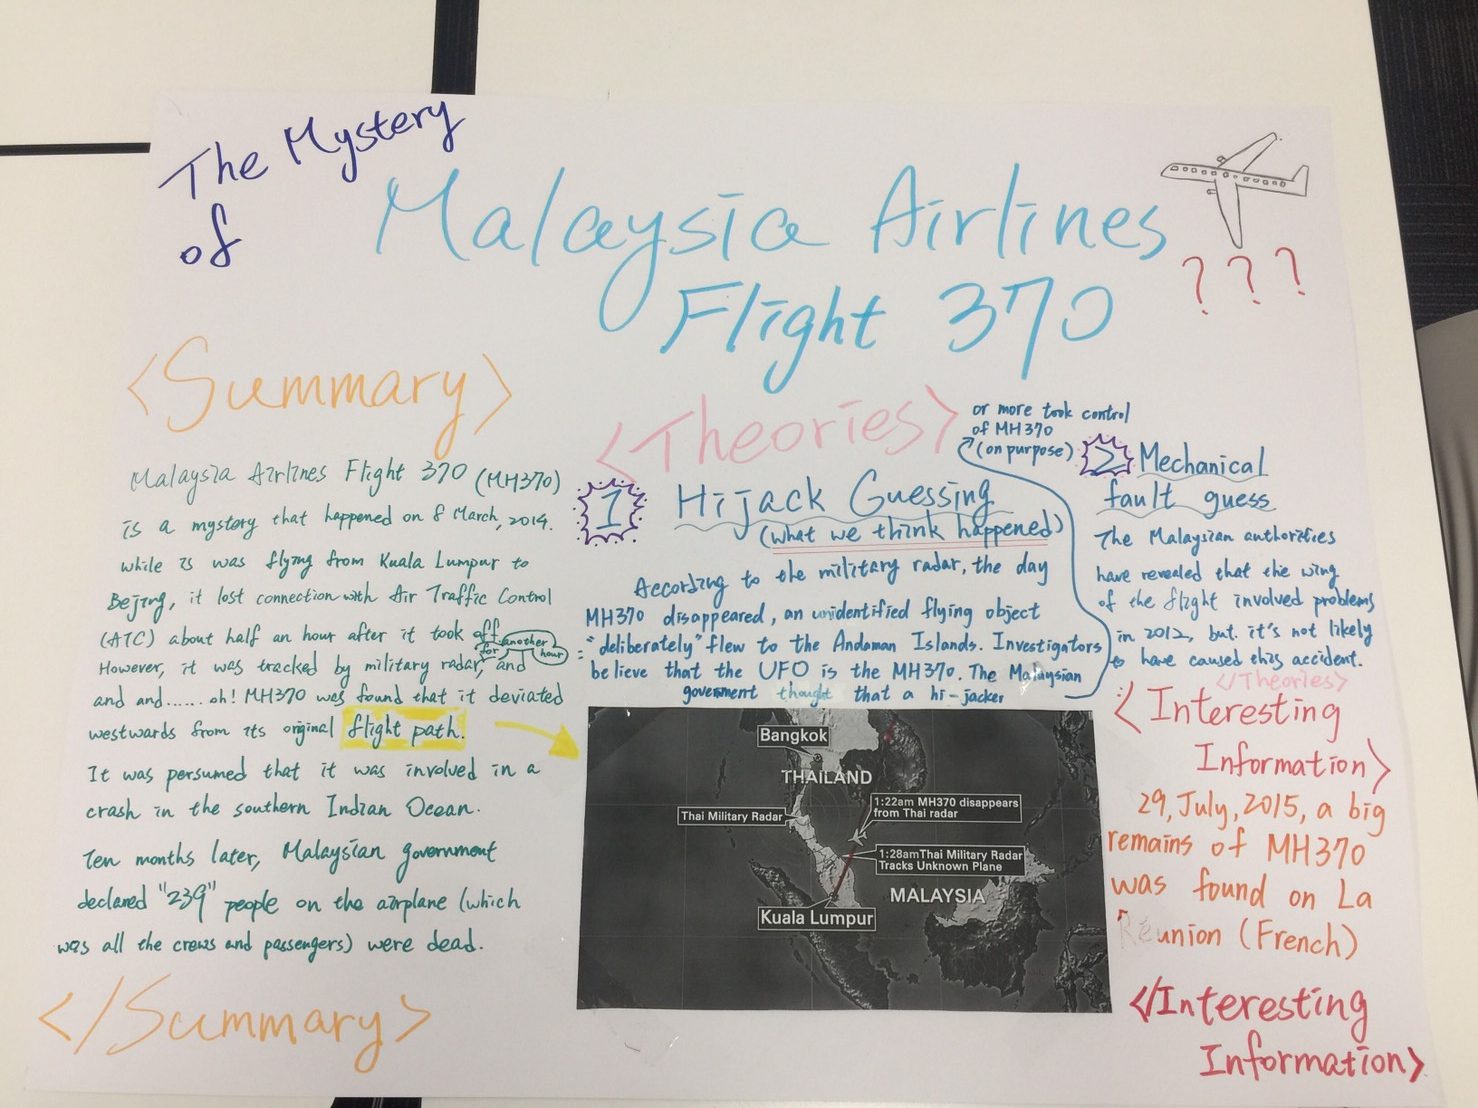 The Mystery
of
Malaysia Airlines
Flight 370
? ? ?
<Summary>
Malaysia Airlines Flight 370 (MH370)
is a mystery that happened on 8 March, 2014.
while is was flying from Kuala Lumpur to
Bejing, it lost connection with Air Traffic Control
(ATC) about half an hour after it took off.
However, it was tracked by military radar, and
for another hour
and and...... oh! MH370 was found that it deviated
westwards from its original flight path.
It was persumed that it was involved in a
crash in the southern Indian Ocean.
Ten months later, Malaysian government
declared "239" people on the airplane (which
was all the crews and passengers) were dead.
</Summary>
<Theories>
1 Hijack Guessing
(what we think happened)
According to the military radar, the day
MH370 disappeared, an unidentified flying object
"deliberately" flew to the Andaman Islands. Investigators
believe that the UFO is the MH370. The Malaysian
government thought that a hi-jacker
or more took control
of MH370
(on purpose)
2 Mechanical
fault guess
The Malaysian authorities
have revealed that the wing
of the flight involved problems
in 2012, but it's not likely
to have caused this accident.
</Theories>
Bangkok
THAILAND
Thai Military Radar
1:22am MH370 disappears
from Thai radar
1:28am Thai Military Radar
Tracks Unknown Plane
MALAYSIA
Kuala Lumpur
<Interesting
Information>
29, July, 2015, a big
remains of MH370
was found on La
Réunion (French)
</Interesting
Information>